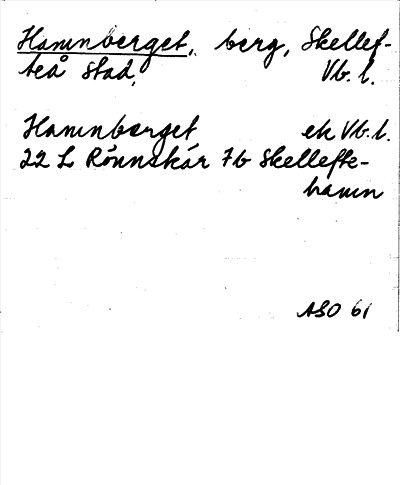 Hamnberget, berg, Skellef-
teå stad, Vb. l.
Hamnberget ek Vb. l.
22 L Rönnskär 7b Skellefte-
hamn
ASO 61